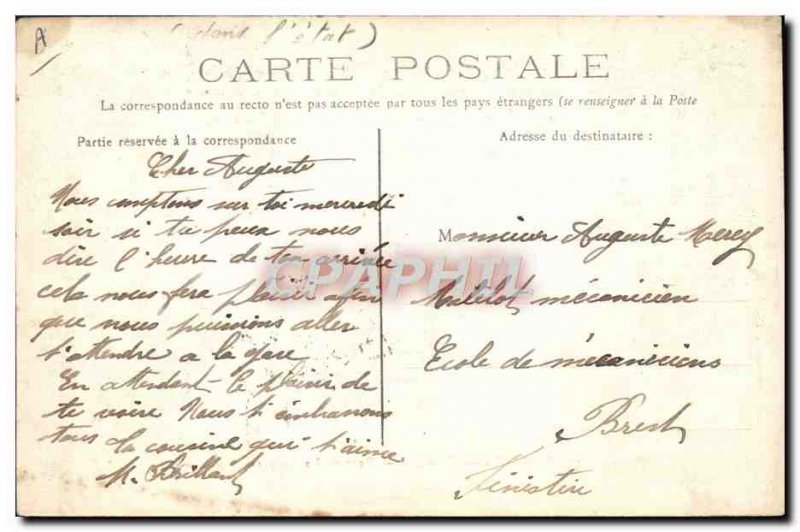 A
(dans l'état)
CARTE POSTALE
La correspondance au recto n'est pas acceptée par tous les pays étrangers (se renseigner à la Poste
Partie réservée à la correspondance
Adresse du destinataire :
Cher Auguste
Nous comptons sur toi mercredi
soir si tu peux nous
dire l'heure de ton arrivée
cela nous fera plaisir afin
que nous puissions aller
t'attendre a la gare
En attendant le plaisir de
te voire Nous t'embrassons
tous la cousine qui t'aime
M. Brillant
Monsieur Auguste
mécanicien
Ecole de mécaniciens
Brest
Finistère
CPAPHIL